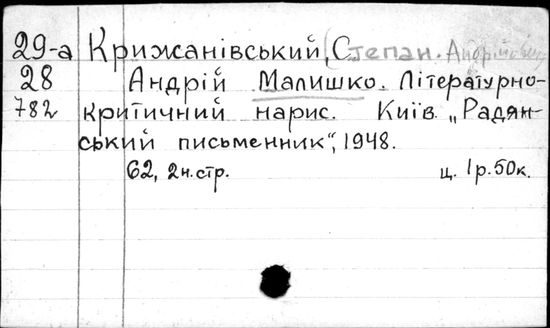 29-а Крижанівський, Степан. Андрійович
28 Андрій Малишко. Літературно-
782 критичний нарис. Київ. „Радян-
ський письменник“, 1948.
62, 2н.стр. ц. 1р.50к.